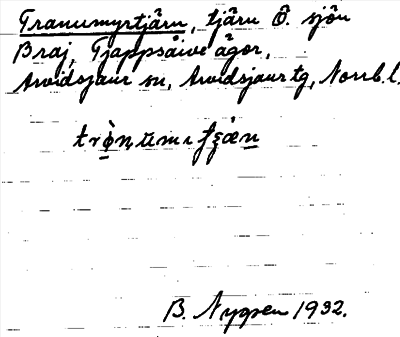 Tranumyrtjärn, tjärn Ö. sjön
Braj, Tjappsåive ägor,
Arvidsjaur sn, Arvidsjaur tg, Norrb.l.
B. Nygren 1932.